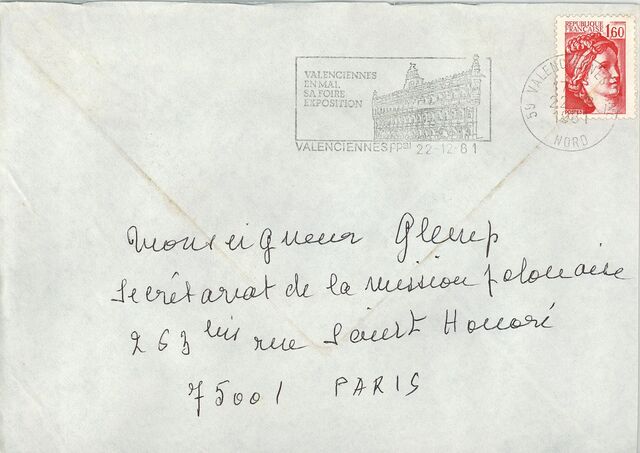 VALENCIENNES
EN MAI,
SA FOIRE
EXPOSITION
VALENCIENNES PPAL 22-12-81
REPUBLIQUE
FRANÇAISE 1,60
POSTES
59 VALENCIENNES
22
1981
NORD
Monseigneur Glemp
Secrétariat de la mission polonaise
263 bis rue Saint Honoré
75001 PARIS